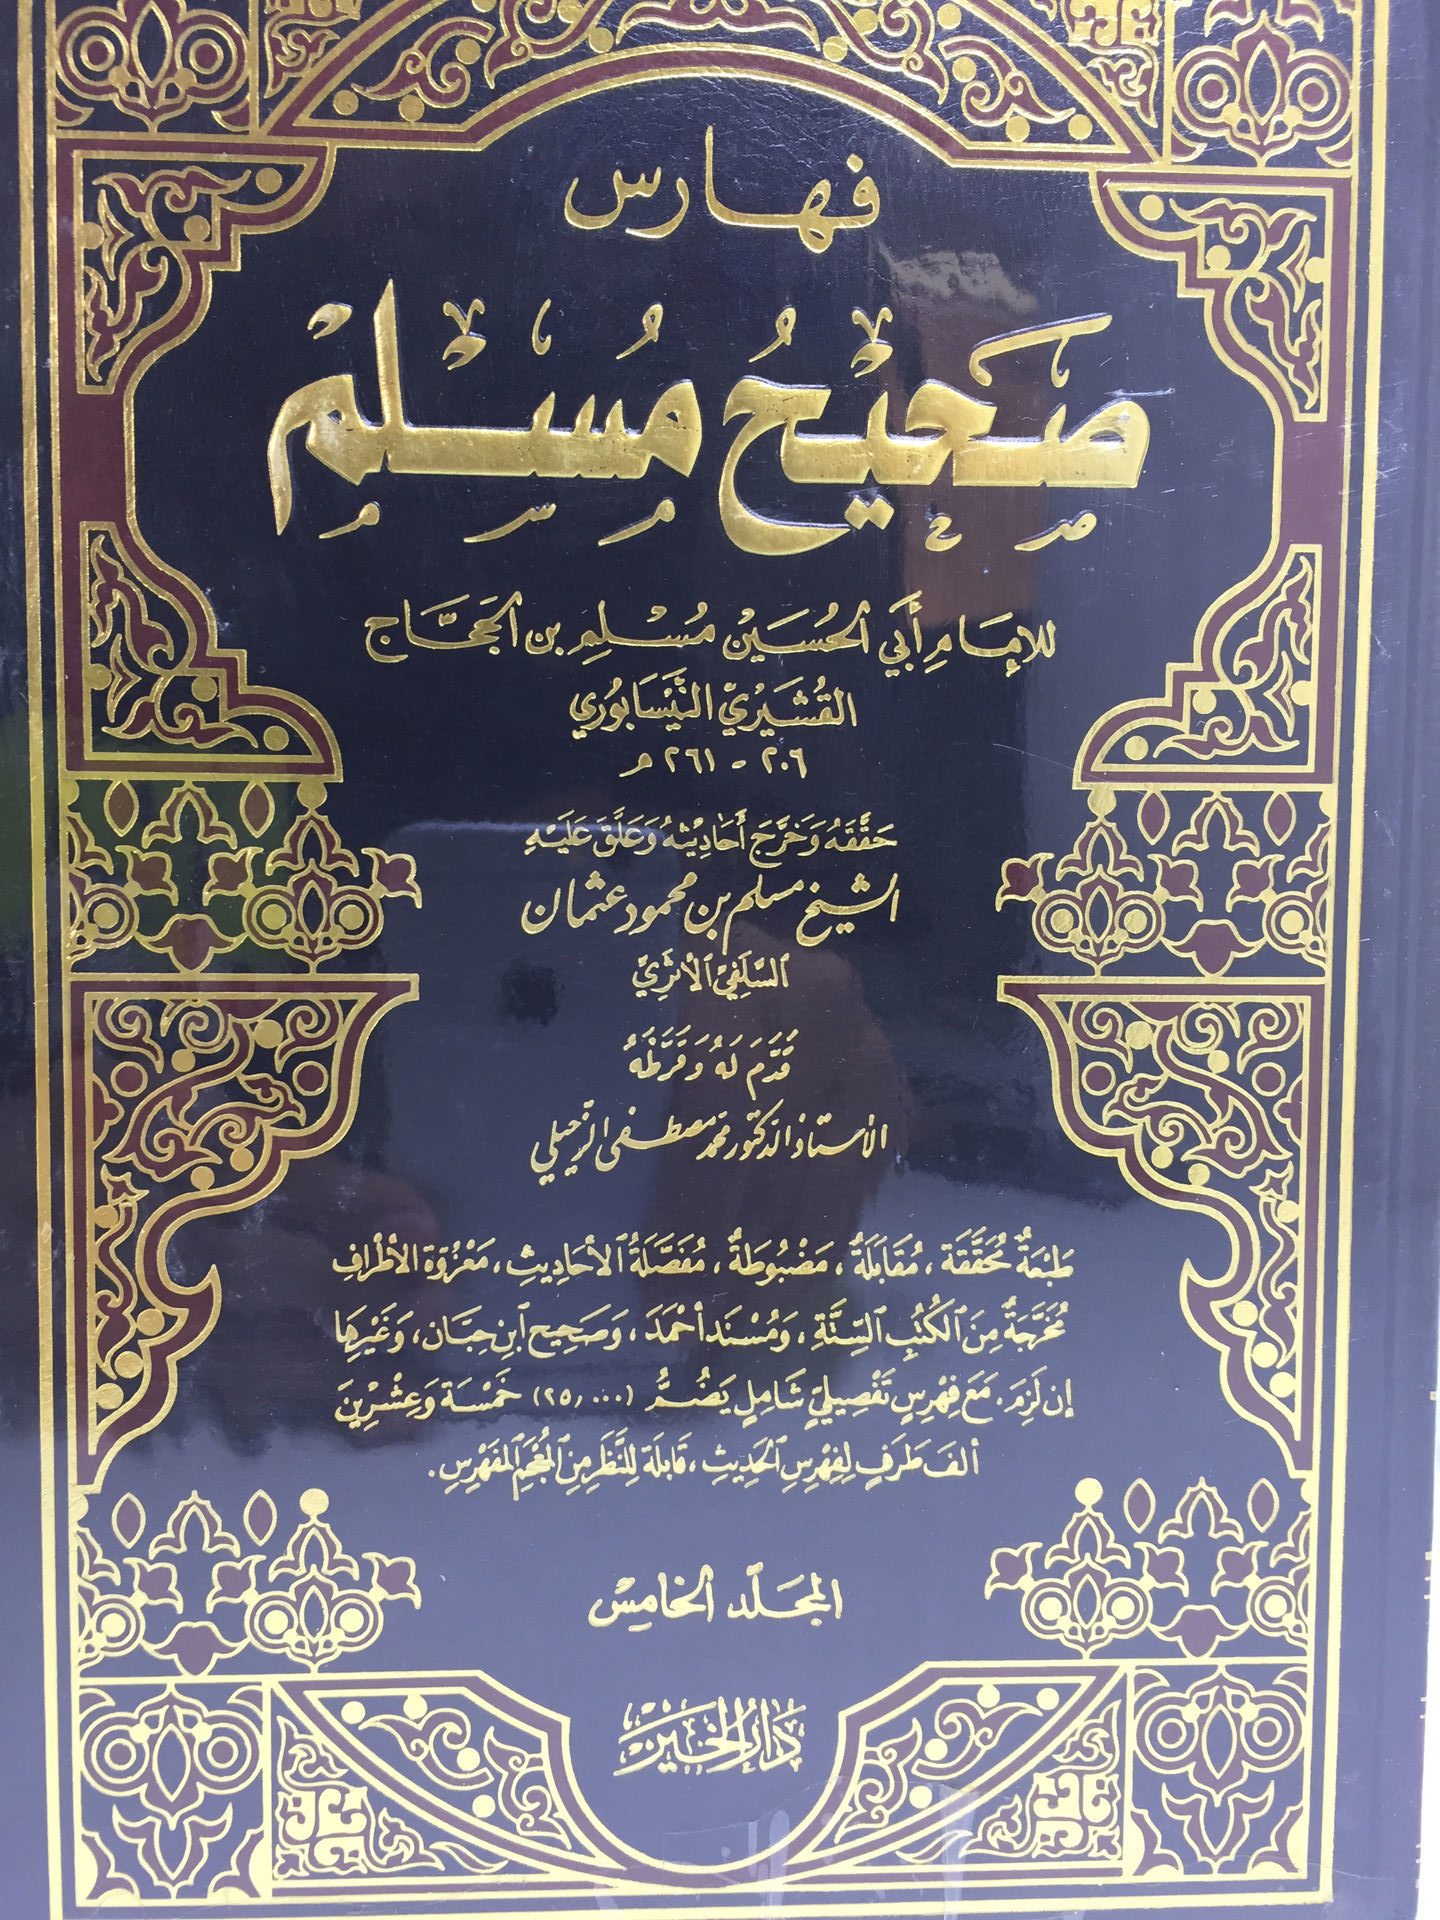 فهارس
صَحِيْحُ مُسْلِمْ
للإمَامِ أَبي الحُسَيْن مُسْلِم بن الحَجَّاج
القُشَيْريّ النَّيْسَابُوري
٢٠٦ - ٢٦١ م
حَقَّقَهُ وَخَرَّجَ أَحَادِيْثهُ وَعَلَّقَ عَلَيْهِ
الشيخ مسلم بن محمود عثمان
السَّلَفِيّ الأثَرِيّ
قَدَّمَ لَهُ وَقَرَّظَهُ
الأستاذ الدكتور محمد مصطفى الزحيلي
طَبْعَةٌ مُحَقَّقَة ، مُقَابَلَةٌ ، مَضْبُوطَةٌ ، مُفَصَّلَةُ الأحَادِيثِ ، مَعْزُوَّة الأطْرَافِ
مُخَرَّجَةٌ مِنَ الكُتُبِ السِّتَّةِ ، وَمُسْنَد أحْمَدَ ، وَصَحِيح ابْنِ حِبَّان ، وَغَيْرِهَا
إن لَزِمَ ، مَعَ فِهْرِسٍ تَفْصِيليّ شَامِلٍ يَضُمُّ (٢٥,٠٠٠) خَمْسَة وَعِشْرِيْنَ
ألفَ طَرَفٍ لِفِهْرِسِ الحَدِيثِ ، قَابِلَة لِلنَّظَر مِنَ المُعْجَمِ المُفَهْرِسِ .
المجَلّد الخامِسْ
دَارُ الخَيْرْ